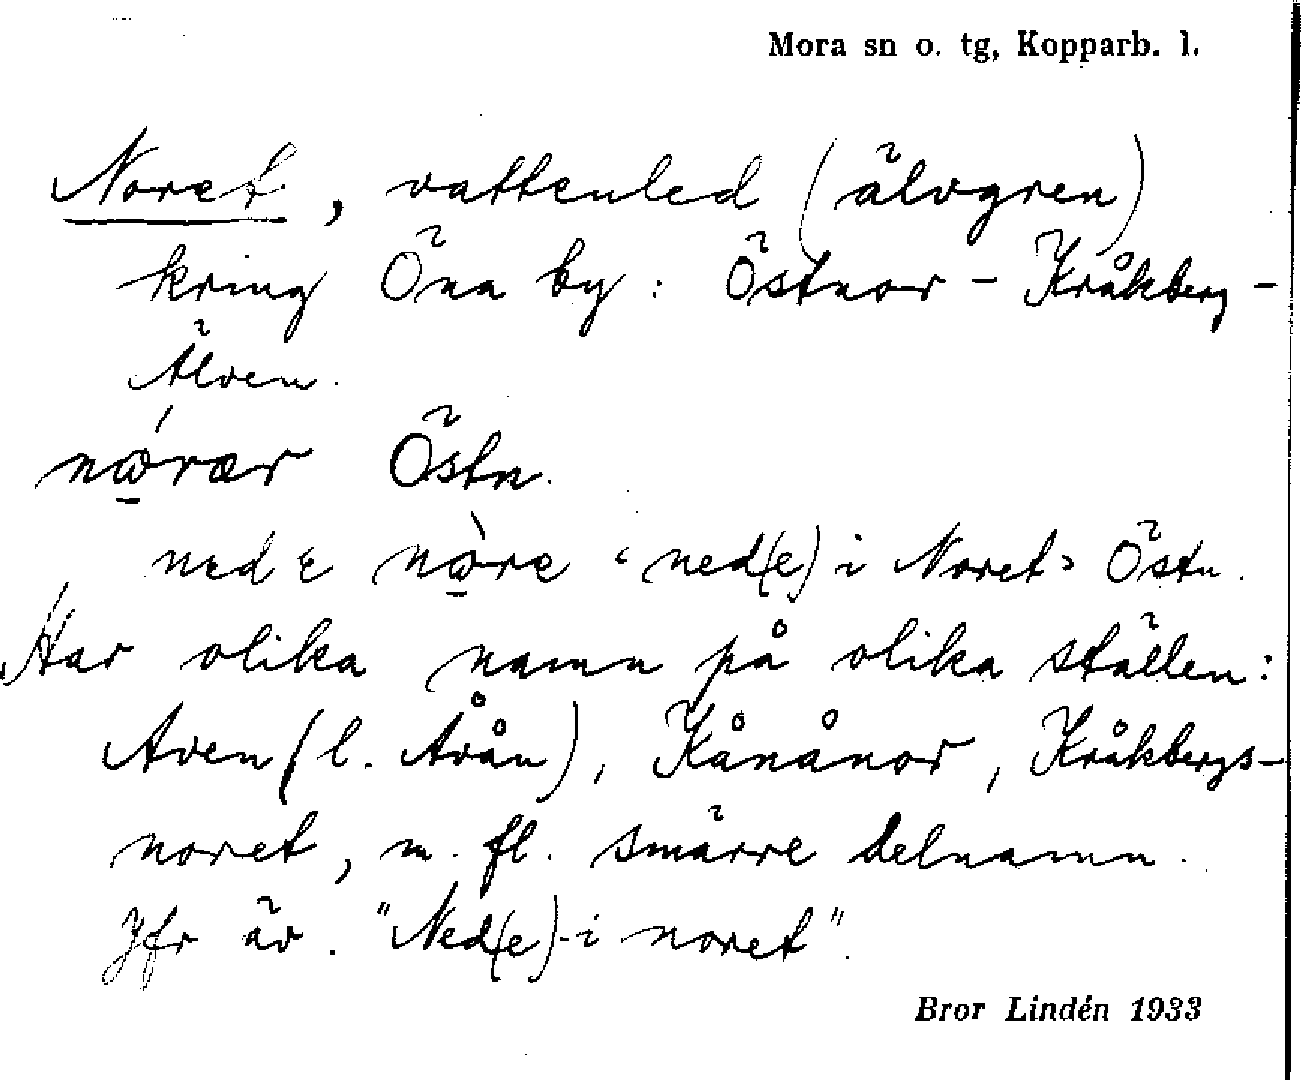 Mora sn o. tg, Kopparb. l.
Noret, vattenled (älvgren)
kring Öna by: Östnor - Kråkberg -
Älven.
Östn.
ned(e) i Noret> Östn.
Har olika namn på olika ställen:
Aven (l. Avån), Kånånor, Kråkbergs-
noret, m. fl. smärre delnamn.
Jfr äv. "Ned(e)-i noret".
Bror Lindén 1933